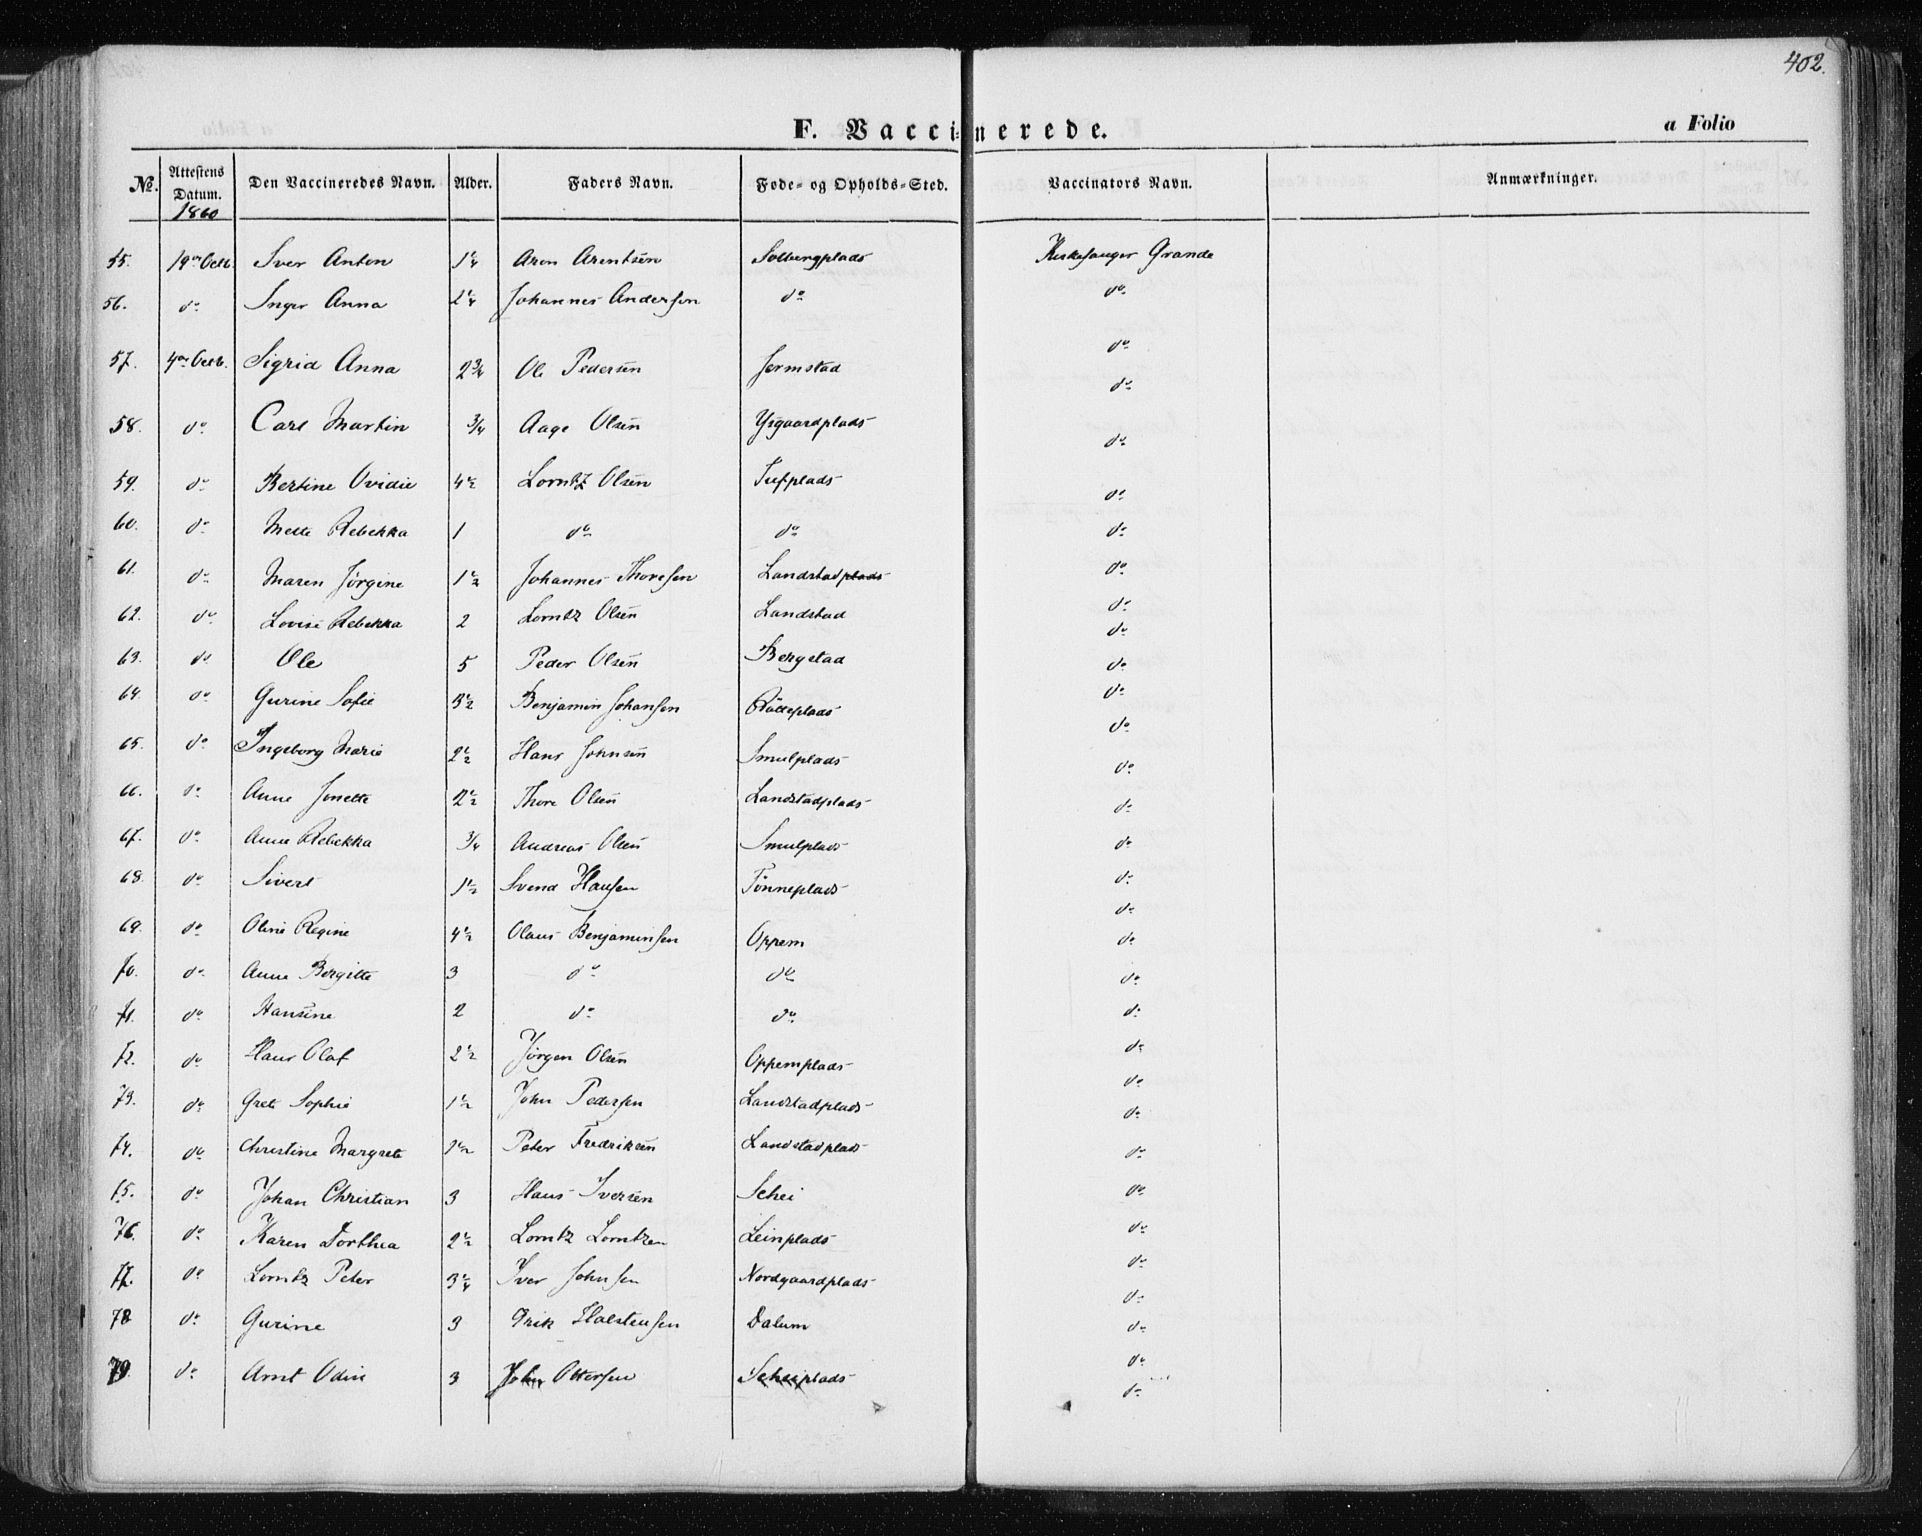 402.
F. Vaccinerede.
a Folio
No. Attestens Datum. Den Vaccineredes Navn. Alder. Faders Navn. Føde- og Opholds-Sted. Vaccinators Navn. Anmærkninger.
1860
55. 19de Octb. Iver Anton 1¼ Aron Arentsen Solbergplads Kirkesanger Grande
56. do Inger Anna 2¼ Johannes Andersen do do
57. 4de Octb. Sigrid Anna 2¾ Ole Pedersen Jermstad do
58. do Carl Martin ¾ Aage Olsen Ysgaardplads do
59. do Bertine Ovidie 4½ Lorntz Olsen Tufplads do
60. do Mette Rebekka 1 do do do
61. do Maren Jørgine 1½ Johannes Thoresen Landstadplads do
62. do Lovise Rebekka 2 Lorntz Olsen Landstad do
63. do Ole 5 Peder Olsen Bergstad do
64. do Gurine Sofie 3½ Benjamin Johansen do
65. do Ingeborg Marie 2½ Hans Johnsen Smulplads do
66. do Anne Jenette 2½ Thore Olsen Landstadplads do
67. do Anne Rebekka ¾ Andreas Olsen Smulplads do
68. do Sivert 1½ Svend Hansen Tønneplads do
69. do Oline Regine 4½ Olaus Benjaminsen Oppem do
70. do Anne Bergitte 3 do do do
71. do Hansine 2 do do do
72. do Hans Olaf 2½ Jørgen Olsen Oppemplads do
73. do Grete Sophie 1½ John Pedersen Landstadplads do
74. do Christine Margrete 1½ Peter Fredriksen Landstadplads do
75. do Johan Christian 3 Hans Iversen Schei do
76. do Karen Dorthea 2½ Lorntz Lorntzen Leinplads do
77. do Lorntz Peter 3¼ Iver Johnsen Nordgaardplads do
78 do Gurine 3 Erik Halstensen Dalum do
79. do Arnt Odin 3 John Ottersen Scheiplads do